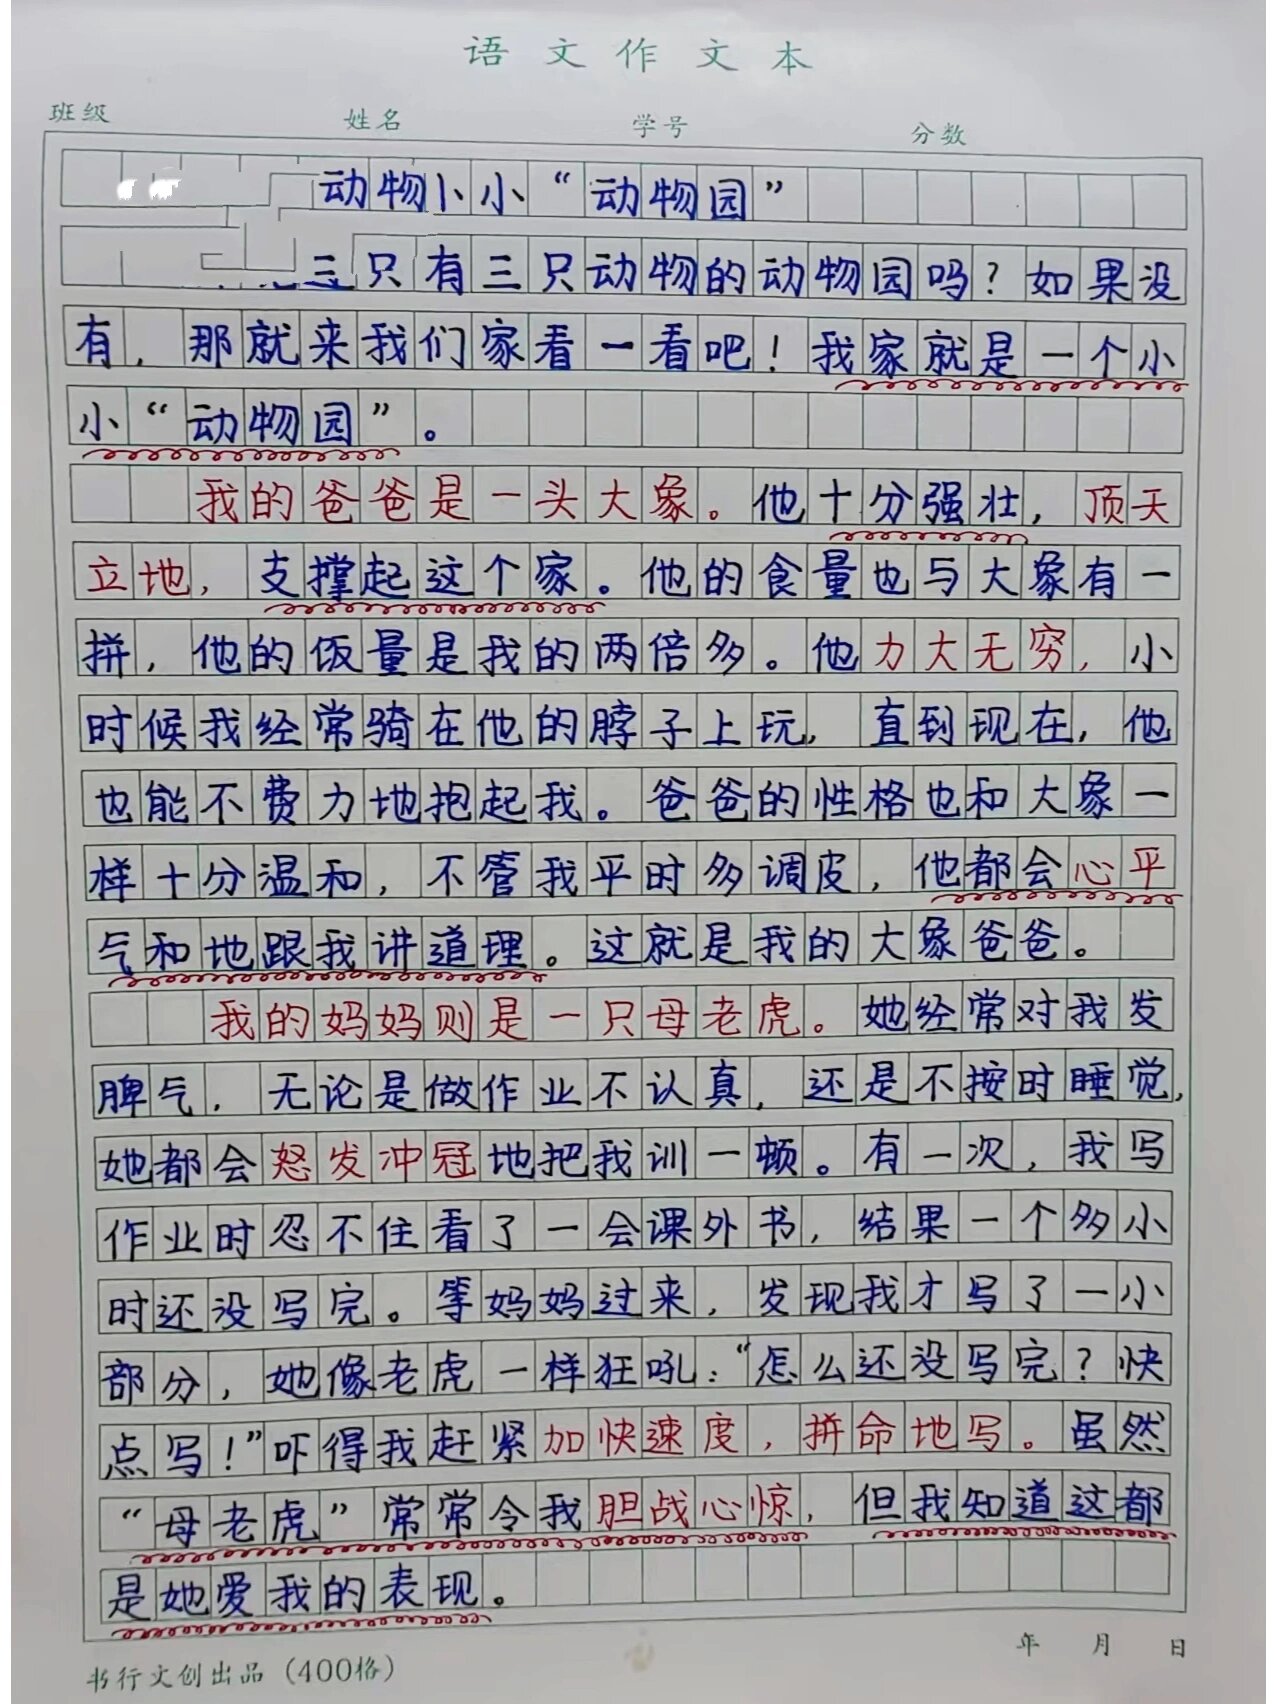 语文作文本
班级 姓名 学号 分数
动物小小“动物园”
三只有三只动物的动物园吗？如果没
有，那就来我们家看一看吧！我家就是一个小
小“动物园”。
我的爸爸是一头大象。他十分强壮，顶天
立地，支撑起这个家。他的食量也与大象有一
拼，他的饭量是我的两倍多。他力大无穷，小
时候我经常骑在他的脖子上玩，直到现在，他
也能不费力地抱起我。爸爸的性格也和大象一
样十分温和，不管我平时多调皮，他都会心平
气和地跟我讲道理。这就是我的大象爸爸。
我的妈妈则是一只母老虎。她经常对我发
脾气，无论是做作业不认真，还是不按时睡觉，
她都会怒发冲冠地把我训一顿。有一次，我写
作业时忍不住看了一会课外书，结果一个多小
时还没写完。等妈妈过来，发现我才写了一小
部分，她像老虎一样狂吼：“怎么还没写完？快
点写！”吓得我赶紧加快速度，拼命地写。虽然
“母老虎”常常令我胆战心惊，但我知道这都
是她爱我的表现。
年 月 日
书行文创出品（400格）